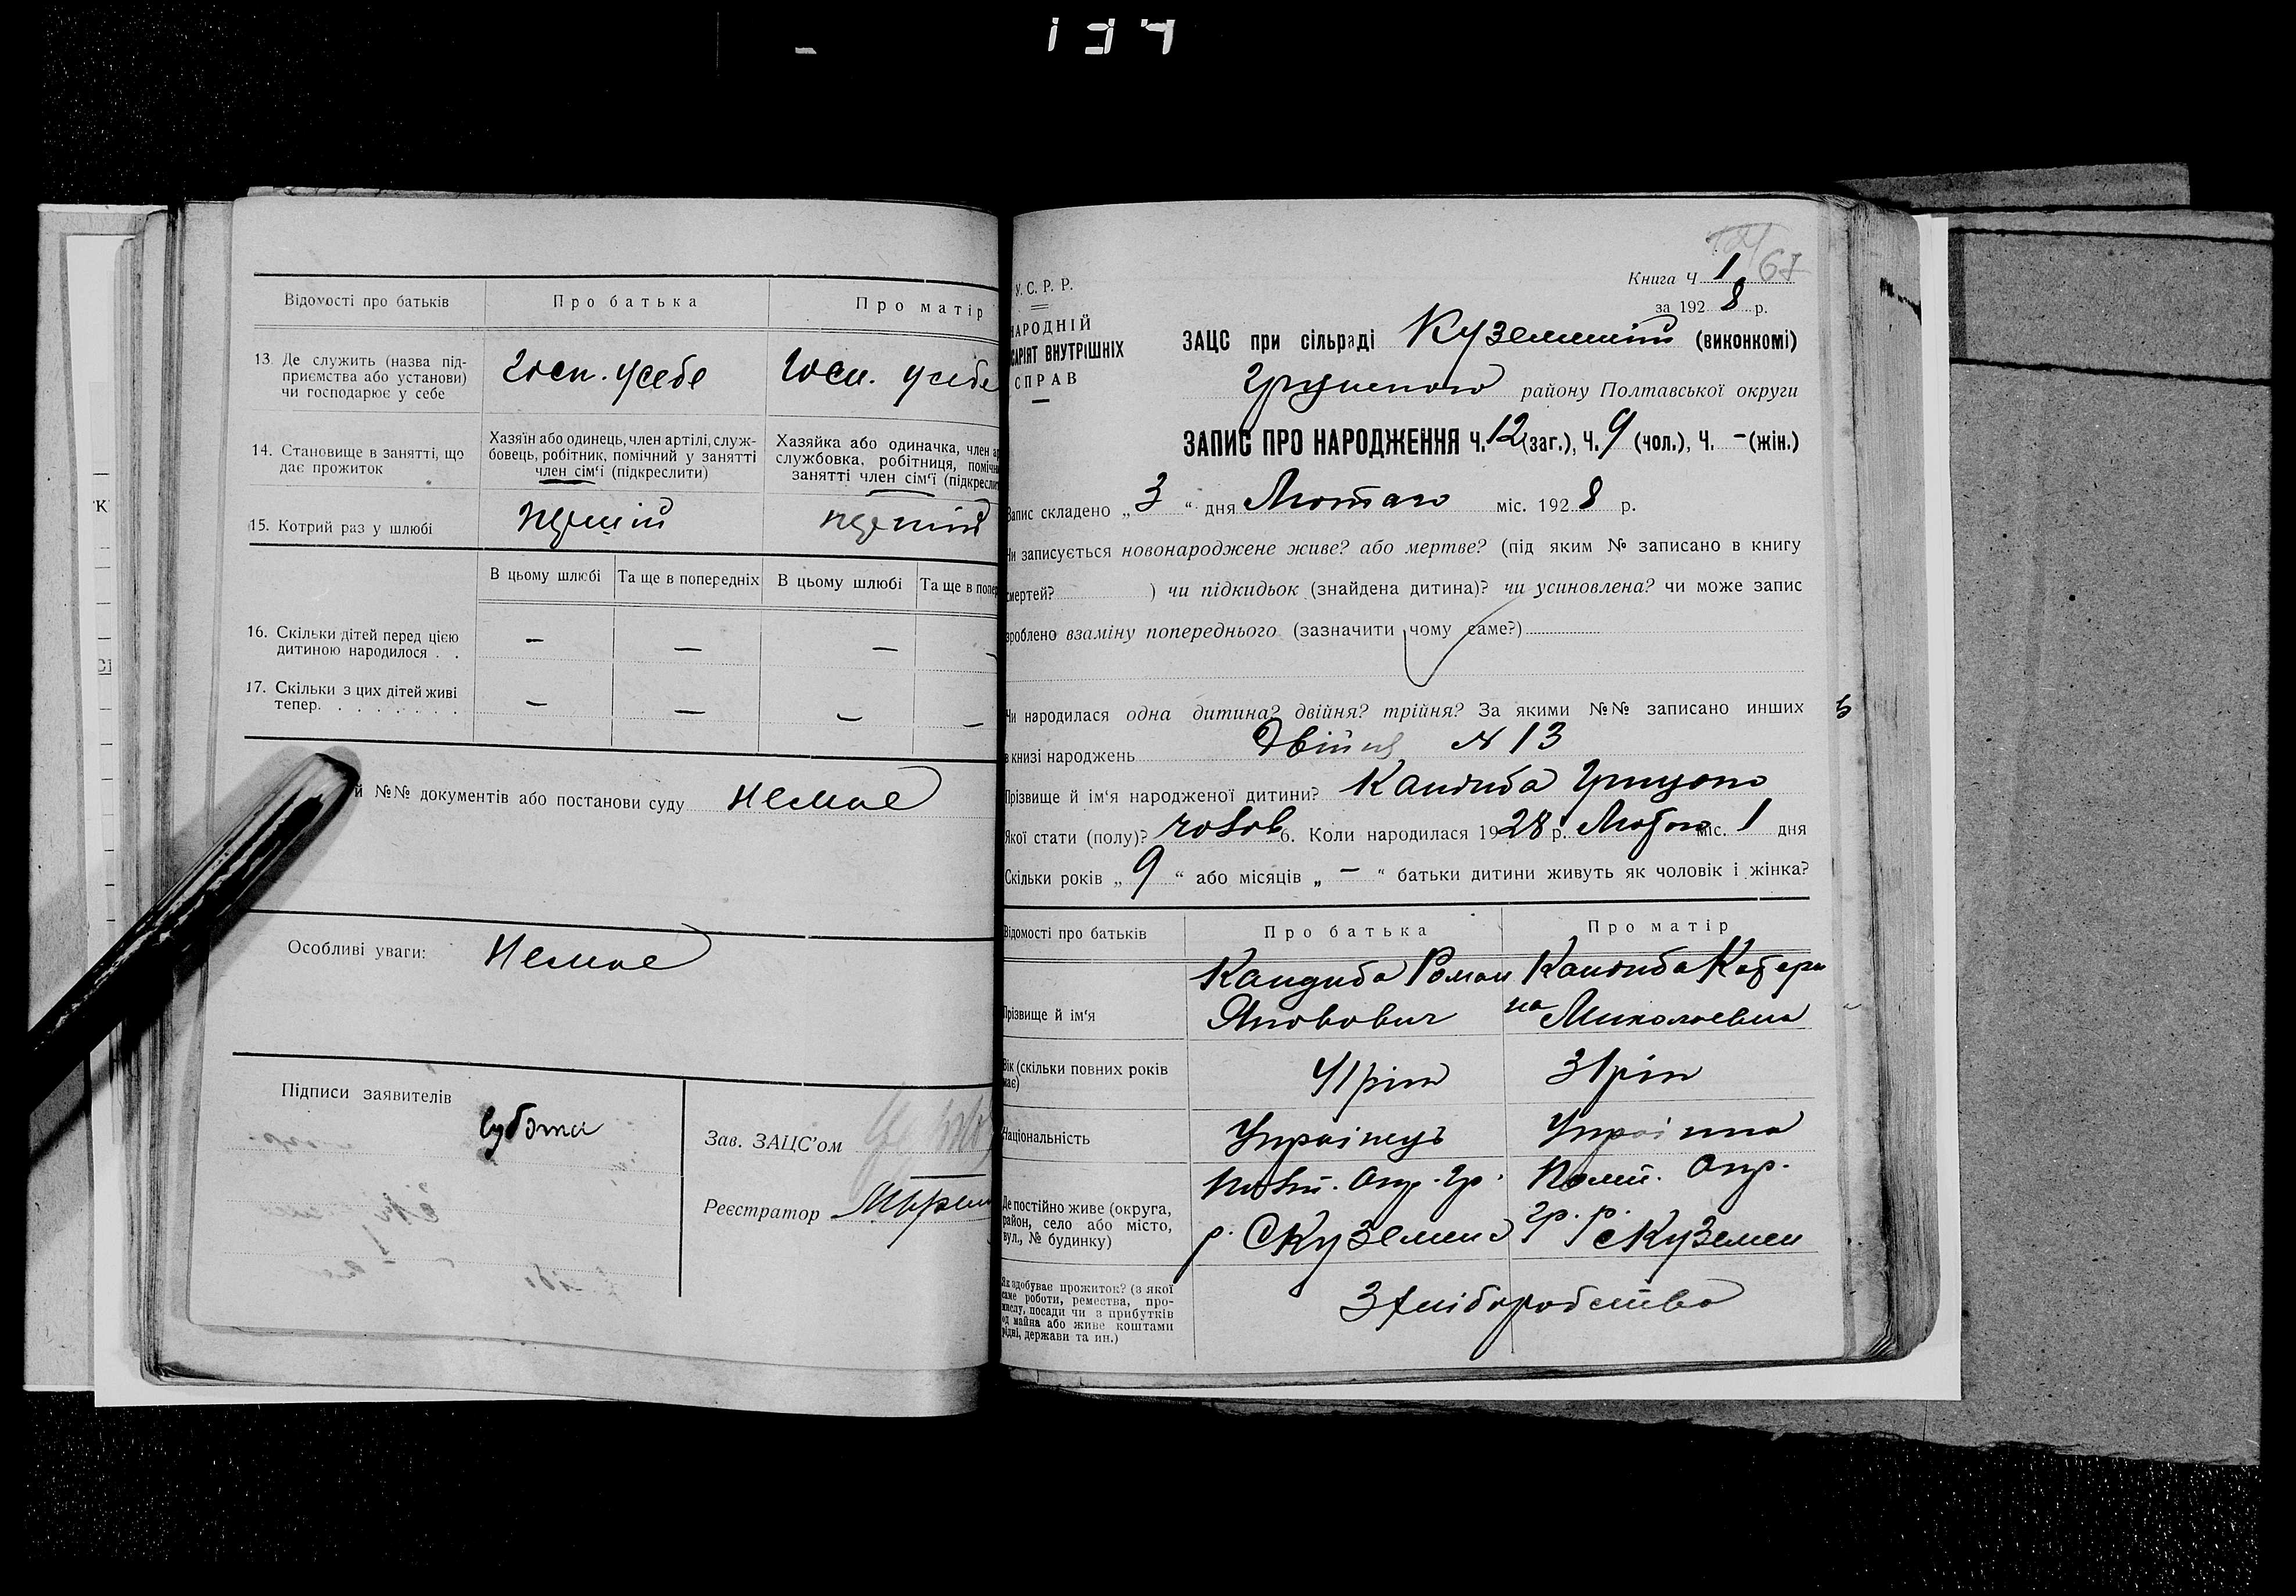 134
Відомості про батьків
Про батька
Про матір
13. Де служить (назва під-
приємства або установи)
чи господарює у себе
госп. усебе
госп. усебе
14. Становище в занятті, що
дає прожиток
Хазяїн або одинець, член артілі, служ-
бовець, робітник, помічний у занятті
член сім'ї (підкреслити)
Хазяйка або одиначка, член
службовка, робітниця,
занятті член сім'ї
15. Котрий раз у шлюбі
В цьому шлюбі
Та ще в попередніх
В цьому шлюбі
Та ще в
16. Скільки дітей перед цією
дитиною народилося . .
— — —
17. Скільки з цих дітей живі
тепер. . . . . . . .
— — — —
й №№ документів або постанови суду немає
Особливі уваги: Немає
Підписи заявителів
Зав. ЗАЦС'ом
Реєстратор
67
Книга Ч 1
за 1928 р.
У.С.Р.Р.
НАРОДНІЙ
ВНУТРІШНІХ
СПРАВ
ЗАЦС при сільраді (виконкомі)
району Полтавської округи
ЗАПИС ПРО НАРОДЖЕННЯ Ч. 12 (заг.), Ч. 9 (чол.), Ч. – (жін.)
Запис складено „ 3 “ дня Лютаго міс. 1928 р.
Чи записується новонароджене живе? або мертве? (під яким № записано в книгу
смертей? ) чи підкидьок (знайдена дитина)? чи усиновлена? чи може запис
зроблено взаміну попереднього (зазначити чому саме?)
Чи народилася одна дитина? двійня? трійня? За якими №№ записано инших
в книзі народжень Двійня N 13
Прізвище й ім'я народженої дитини? Кандиба Грицько
Якої стати (полу)? чолов 6. Коли народилася 1928 р. міс. 1 дня
Скільки років „ 9 “ або місяців „ – “ батьки дитини живуть як чоловік і жінка?
Відомості про батьків
Про батька
Про матір
Прізвище й ім'я
Кандиба Роман
Яковович
Кандиба Катери
на Миколаевна
Вік (скільки повних років
має)
41 рік
31 рік
Національність
Українець
Українка
Де постійно живе (округа,
район, село або місто,
вул., № будинку)
Полт. Окр. Гр.
р. С Куземен
Полт. Окр.
Гр. р. с Куземен
Як здобуває прожиток? (з якої
саме роботи, ремества, про-
мислу, посади чи з прибутків
од майна або живе коштами
рідні, держави та ин.)
З хліборобства